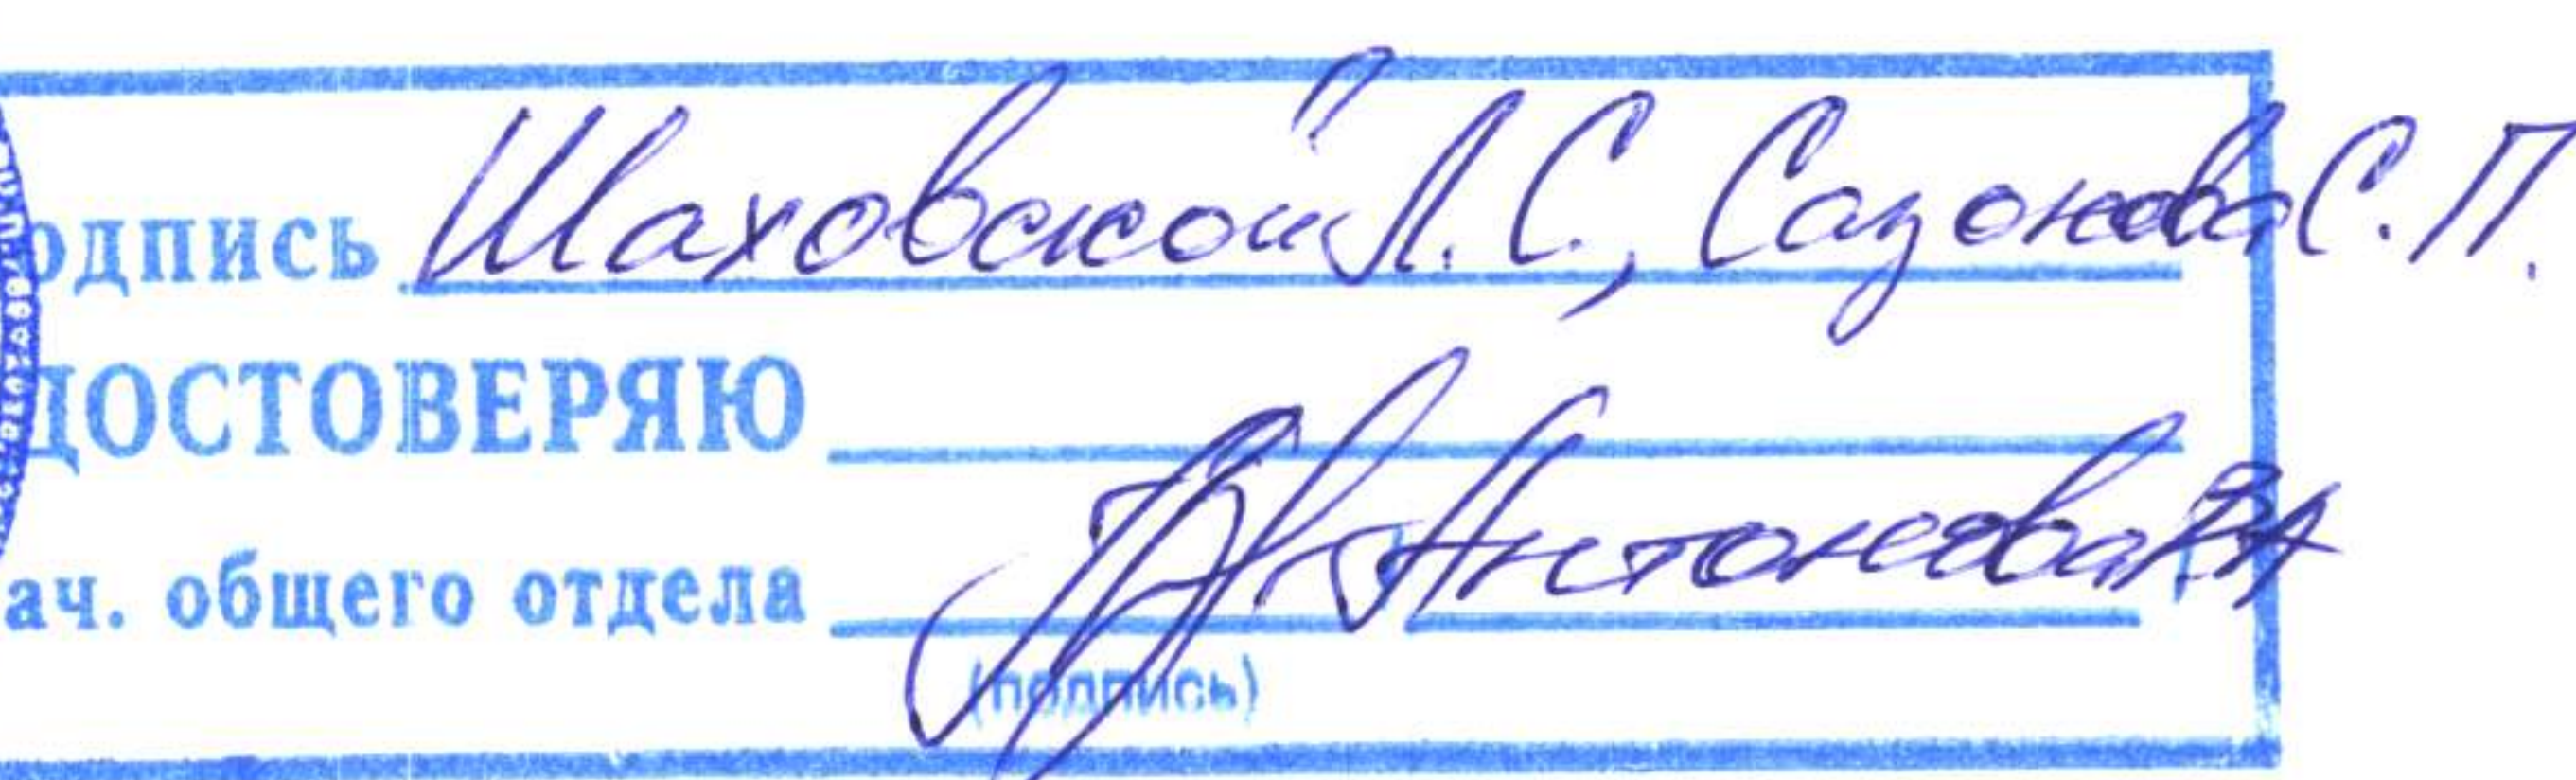 одпись Шаховской Л.С., Сазонова С.П.
ДОСТОВЕРЯЮ
ач. общего отдела Антонова
(подпись)